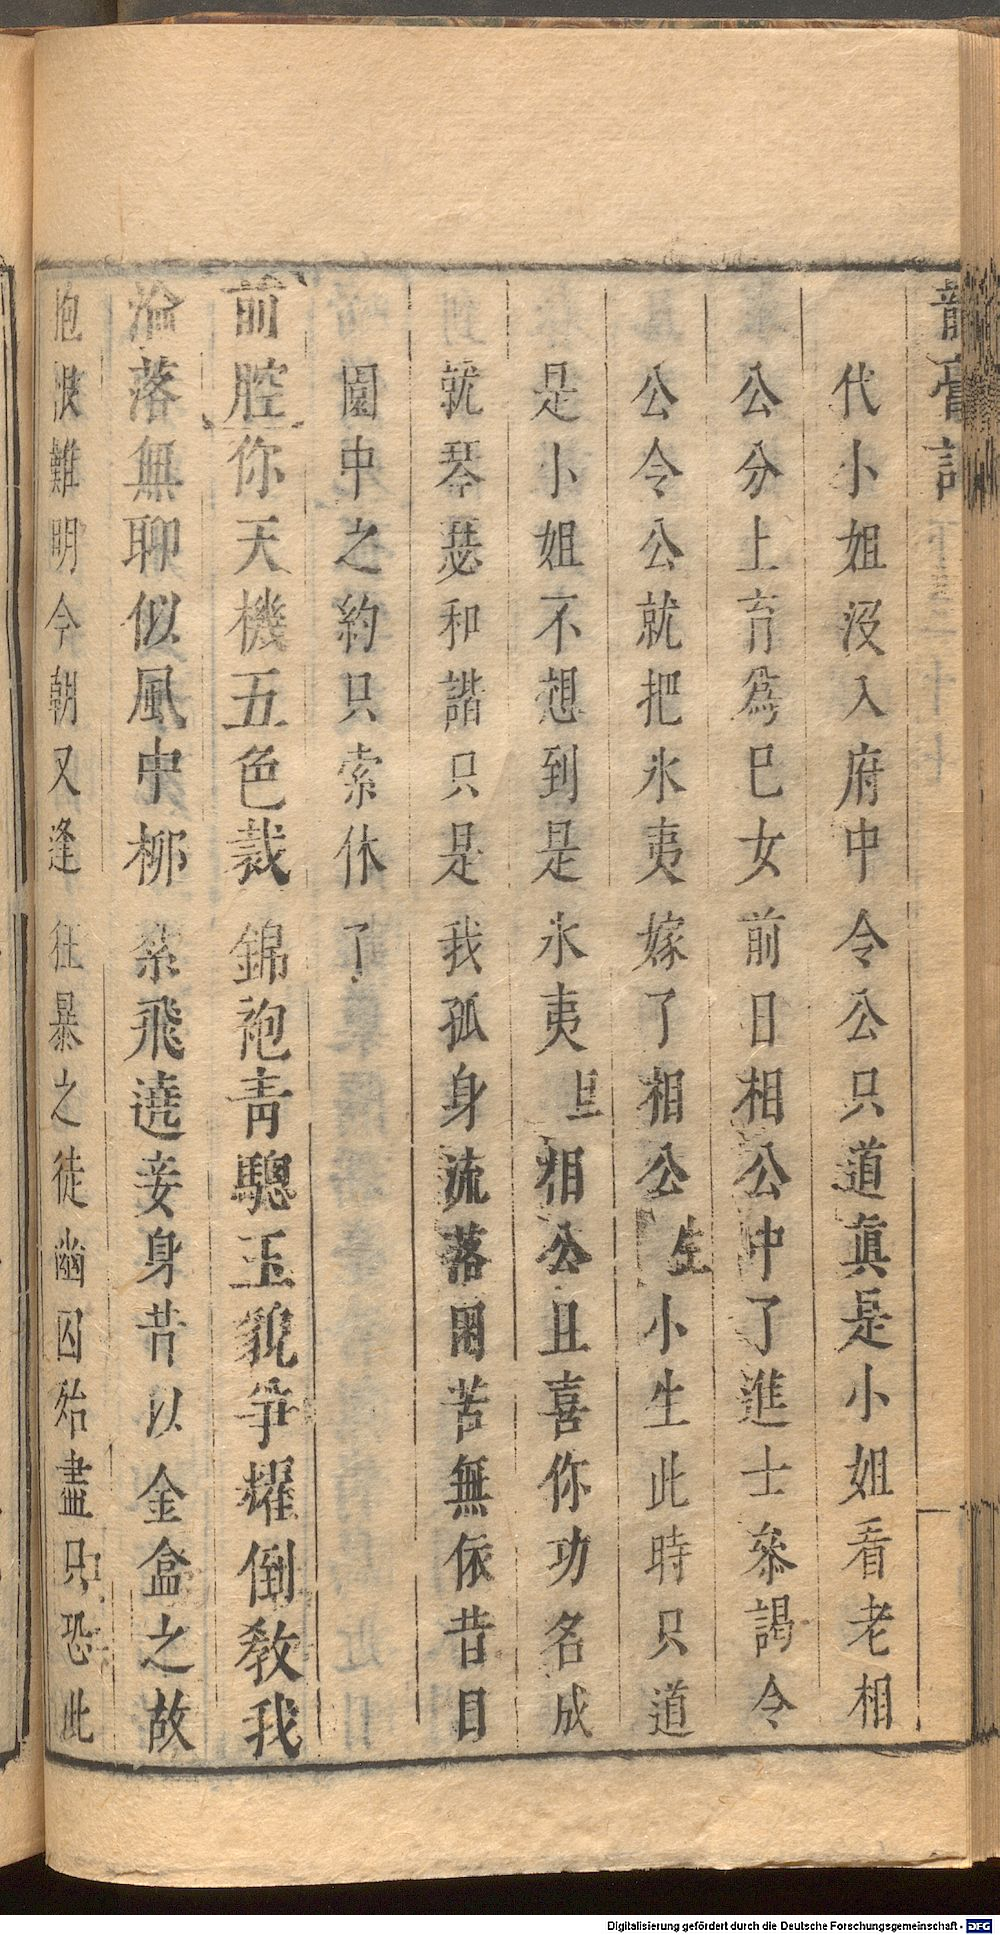 龍膏記
代小姐沒入府中令公只道真是小姐看老相
公分上育為巳女前日相公中了進士叅謁令
公令公就把氷夷嫁了相公生小生此時只道
是小姐不想到是氷夷旦相公且喜你功名成
就琴瑟和諧只是我孤身流落困苦無依昔日
園中之約只索休了
前腔你天機五色裁錦袍青驄玉貌爭耀倒教我
淪落無聊似風中柳絮飛遶妾身昔以金盒之故
抱疾難明今朝又逢狂暴之徒幽囚殆盡只恐此
Digitalisierung gefördert durch die Deutsche Forschungsgemeinschaft - DFG